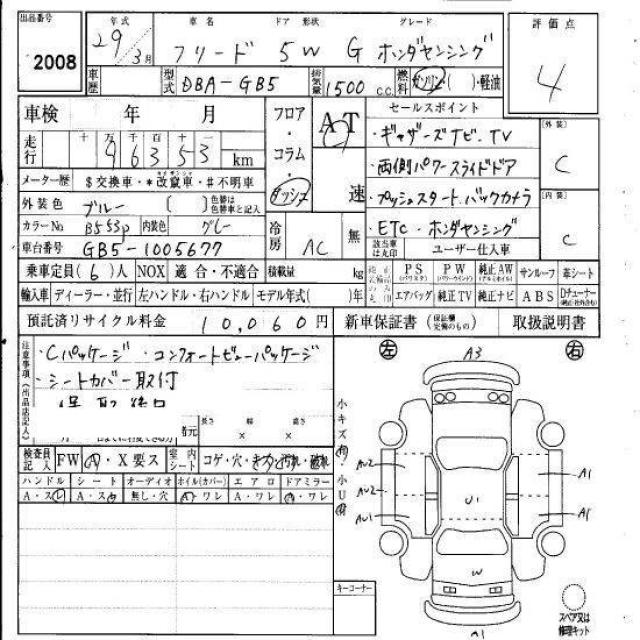 出品番号 年式 車名 ドア 形状 グレード 評価点
2008 29年 3月 フリード 5W G ホンダセンシング 4
車歴 型式 DBA-GB5 排気量 1500 c.c. 燃料 ガソリン・( )・軽油
車検 年 月 フロア・コラム・ダッシュ AT 速 セールスポイント
走行 十 万 千 百 十 一 96353 km ・ギャザーズナビ・TV [外装] C
メーター歴 $交換車・*改竄車・#不明車 ・両側パワースライドドア
外装色 ブルー ( ) 色替は色替車と記入 ・プッシュスタート・バックカメラ [内装] C
カラーNo B553P 内装色 グレー 冷房 AC 無 ・ETC・ホンダセンシング
車台番号 GB5-1005677 該当車は丸印 ユーザー仕入車
乗車定員(6)人 NOX 適合・不適合 積載量 kg PS PW 純正AW サンルーフ 革シート
輸入車 ディーラー・並行 左ハンドル・右ハンドル モデル年式( )年 エアバッグ 純正TV 純正ナビ ABS Dチューナー
預託済リサイクル料金 10,060円 新車保証書 (保証欄完備のもの) 取扱説明書
注意事項(出品店記入) ・Cパッケージ・コンフォートビューパッケージ 左 A3 右
・シートカバー取付
長さ 幅 高さ
者元 × × 小キズ 有・小U 有
検査員記入 FW A・X要ス 室内シート コゲ・穴・キズ・汚れ・破れ
ハンドル シート オーディオ ホイル(カバー) エアロ ドアミラー AU2 A1
A・スレ A・ス 無し・穴 A・ワレ A・ワレ A・ワレ AU2 U1
AU1 A1
W
キーコーナー
スペア又は修理キット
A1